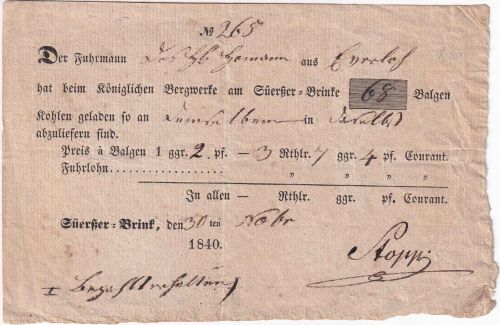 № 265
Der Fuhrmann Homann aus
hat beim Königlichen Bergwerke am Süerßer-Brinke 68 Balgen
Kohlen geladen so an demselben in daselbst
abzuliefern sind.
Preis à Balgen 1 ggr. 2 pf. — 3 Rthlr. 7 ggr. 4 pf. Courant.
Fuhrlohn.................... „ „ „ „
In allen — Rthlr. ggr. pf. Courant.
Süerßer-Brink, den 30 ten Nobr
1840.
Stopp
Bezahlt erhalten